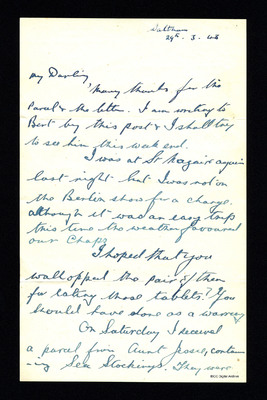 Waltham
29th. 3. 42
My Darling,
Many thanks for the
Parcel & the letter. I am writing to
Bert by this post & I shall try
to see him this week end.
I was at St Nazaire again
last night but I was not on
the Berlin show for a change.
although it was an easy trip
this time the weather favoured
our Chaps.
I hoped that you
walloped the pair of them
for eating those tablets? You
should have done as a warning
On Saturday I received
a parcel from Aunt Jessie, contain
ing Sea Stockings. They were